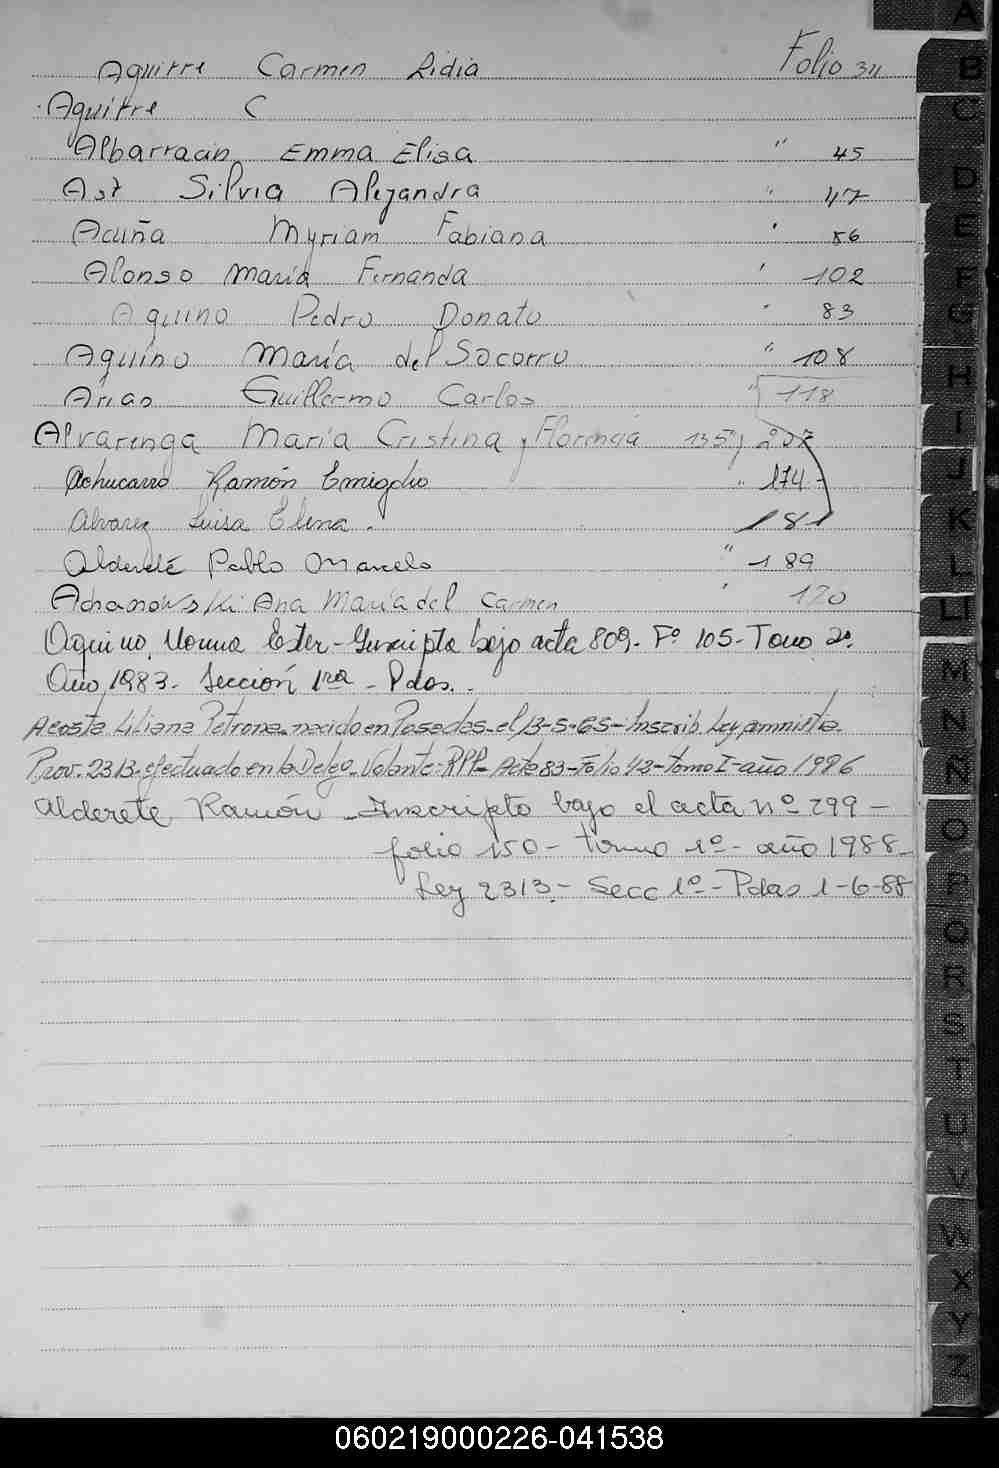 Aguirre Carmen Lidia Folio 34
Aguirre C
Albarracin Emma Elisa " 45
Ast Silvia Alejandra " 47
Acuña Myriam Fabiana " 56
Alonso Maria Fernanda " 102
Aquino Pedro Donato " 83
Aquino María del Socorro " 108
Arias Guillermo Carlos " 118
Alvarenga María Cristina y Florencia 135 y 207
Achucarro Ramón Emigdio " 174
Alvarez Luisa Elena. 181
Alderete Pablo Marcelo " 189
Adamowski Ana María del Carmen " 120
Aquino, Norma Ester - Inscripta bajo acta 809 - Fº 105 - Tomo 2º.
Año 1983 - Sección 1ra - Pdas.
Acosta Liliana Petrona - nacido en Posadas - el 13-5-65 - Inscrib. Ley amnistia
Prov. 2313 - efectuado en la Deleg. Volante - RPP - Acta 83 - Folio 43 - tomo I - año 1986
Alderete Ramón - Inscripto bajo el acta nº 299 -
folio 150 - tomo 1º - año 1988 -
Ley 2313 - Secc 1º - Pdas 1-6-88
A
B
C
D
E
F
G
H
I
J
K
L
LL
M
N
Ñ
O
P
Q
R
S
T
U
V
W
X
Y
Z
060219000226-041538